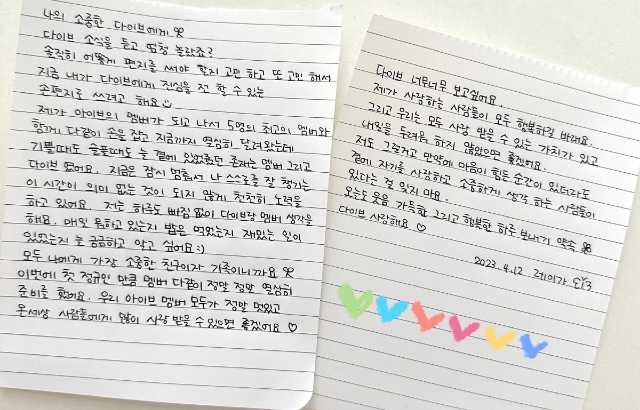 나의 소중한 다이브에게 🎀
다이브 소식을 듣고 엄청 놀랐죠?
솔직히 어떻게 편지를 써야 할지 고민하고 또 고민 해서
지금 내가 다이브에게 진심을 전 할 수 있는
손편지로 쓰려고 해요☺
제가 아이브의 멤버가 되고 나서 5명의 최고의 멤버와
함께 다같이 손을 잡고 지금까지 열심히 달려왔는데
기쁠때도 슬플때도 늘 곁에 있었줬던 존재는 멤버 그리고
다이브 였어요. 지금은 잠시 멈춰서 나 스스로를 잘 챙기는
이 시간이 의미 없는 것이 되지 않게 천천히 노력을
하고 있어요. 저는 하루도 빠짐 없이 다이브랑 멤버 생각을
해요. 매일 뭐하고 있는지 밥은 먹었는지 재밌는 일이
있었는지 늘 궁금하고 알고 싶어요:)
모두 나에게 가장 소중한 친구이자 가족이니까요 🎀
이번에 첫 정규인 만큼 멤버 다같이 정말 정말 열심히
준비를 했어요. 우리 아이브 멤버 모두가 정말 멋있고
온세상 사람들에게 많이 사랑 받을 수 있으면 좋겠어요 ♡
다이브 너무너무 보고싶어요.
제가 사랑하는 사람들이 모두 행복하길 바래요.
그리고 우리는 모두 사랑 받을 수 있는 가치가 있고
내일을 두려워 하지 않았으면 좋겠어요.
저도 그렇고 만약에 마음이 힘든 순간이 있더라도
곁에 자기를 사랑하고 소중하게 생각 하는 사람들이
있다는 걸 잊지 마요.
오늘도 웃음 가득한 그리고 행복한 하루 보내기 약속 🎀
다이브 사랑해요 ♡
2023.4.12 레이가